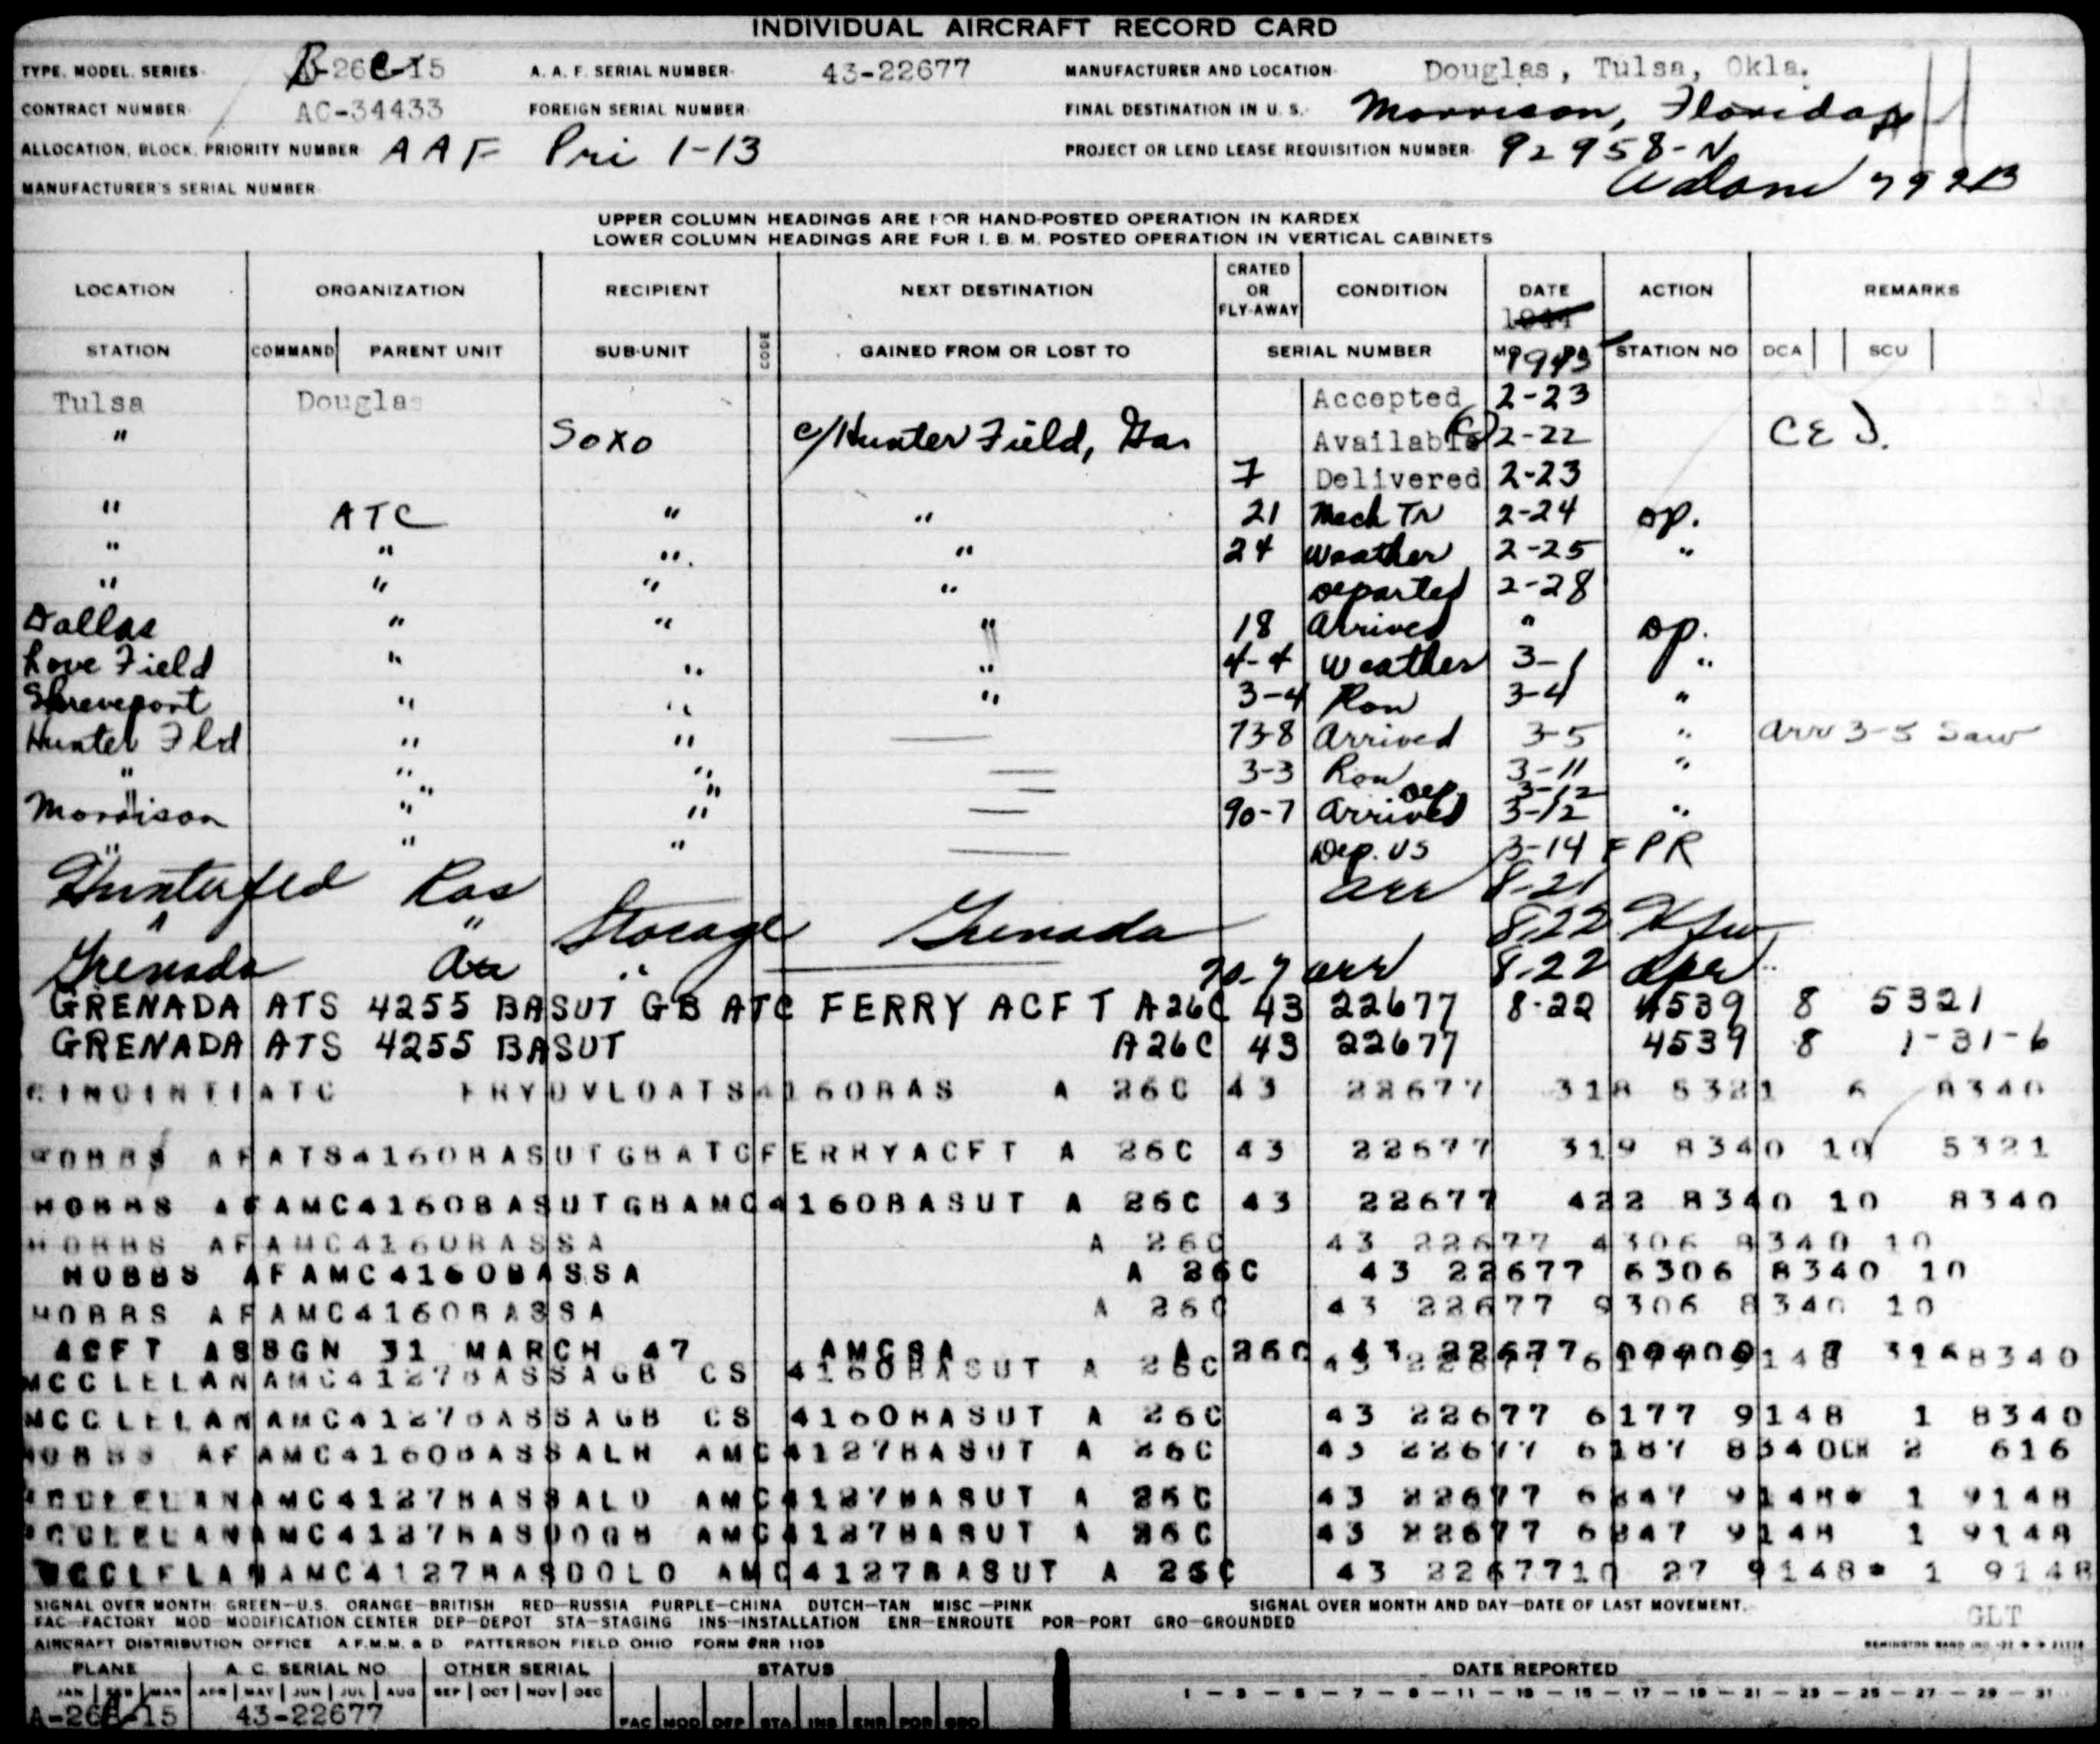 INDIVIDUAL AIRCRAFT RECORD CARD
TYPE, MODEL, SERIES B-26C-15 A. A. F. SERIAL NUMBER 43-22677 MANUFACTURER AND LOCATION Douglas, Tulsa, Okla.
CONTRACT NUMBER AC-34433 FOREIGN SERIAL NUMBER FINAL DESTINATION IN U. S. Morrison, Florida
ALLOCATION, BLOCK, PRIORITY NUMBER AAF Pri 1-13 PROJECT OR LEND LEASE REQUISITION NUMBER 92958-N
MANUFACTURER'S SERIAL NUMBER
UPPER COLUMN HEADINGS ARE FOR HAND-POSTED OPERATION IN KARDEX
LOWER COLUMN HEADINGS ARE FOR I. B. M. POSTED OPERATION IN VERTICAL CABINETS
LOCATION ORGANIZATION RECIPIENT NEXT DESTINATION CRATED OR FLY-AWAY CONDITION DATE ACTION REMARKS
1944
STATION COMMAND PARENT UNIT SUB-UNIT CODE GAINED FROM OR LOST TO SERIAL NUMBER 1945 STATION NO DCA SCU
Tulsa Douglas Accepted 2-23
" SOXO c/Hunter Field, Ga. Available 2-22 CEJ.
7 Delivered 2-23
" ATC " " 21 Mech Tr 2-24 op.
" " " " 24 Weather 2-25 "
" " " " Departed 2-28
Dallas " " " 18 Arrived " op.
Love Field " " " 4-4 Weather 3-1 "
Shreveport " " " 3-4 Ron 3-4 "
Hunter Fld " " — 73-8 Arrived 3-5 " Arr 3-5 Sav
" " " — 3-3 Ron 3-11 "
" " " — Dep. 3-12
Morrison " " — 90-7 Arrived 3-12 "
" " " — Dep. US 3-14 FPR
Hunterfld Ras arr 8-21
" " Storage Grenada 8-22
Grenada " — arr 8-22 oper
GRENADA ATS 4255 BASUT GB ATC FERRY ACFT A26C 43 22677 8-22 4539 8 5321
GRENADA ATS 4255 BASUT A26C 43 22677 4539 8 1-31-6
CINCINTIATC FRYDVLOATS4160BAS A 26C 43 22677 318 5321 6 8340
HOBBS AFATS4160BASUTGBATCFERRYACFT A 26C 43 22677 319 8340 10 5321
HOBBS AFAMC4160BASUTGBAMC4160BASUT A 26C 43 22677 422 8340 10 8340
HOBBS AFAMC4160BASSA A 26C 43 22677 4306 8340 10
HOBBS AFAMC4160BASSA A 26C 43 22677 6306 8340 10
HOBBS AFAMC4160BASSA A 26C 43 22677 9306 8340 10
ACFT ASSGN 31 MARCH 47 AMCSA A 26C 43 22677
MCCLELANAMC4127BASSAGB CS 4160BASUT A 26C 43 22677 6177 9148 8340
MCCLELANAMC4127BASSAGB CS 4160BASUT A 26C 43 22677 6177 9148 1 8340
HOBBS AFAMC4160BASSALH AMC4127BASUT A 26C 43 22677 6187 8340CH 2 616
MCCLELANAMC4127BASSALO AMC4127BASUT A 26C 43 22677 6247 9148* 1 9148
MCCLELANAMC4127BASDOGB AMC4127BASUT A 26C 43 22677 6247 9148 1 9148
MCCLELANAMC4127BASDOLO AMC4127BASUT A 26C 43 2267710 27 9148* 1 9148
SIGNAL OVER MONTH: GREEN—U.S. ORANGE—BRITISH RED—RUSSIA PURPLE—CHINA DUTCH—TAN MISC—PINK SIGNAL OVER MONTH AND DAY—DATE OF LAST MOVEMENT.
FAC—FACTORY MOD—MODIFICATION CENTER DEP—DEPOT STA—STAGING INS—INSTALLATION ENR—ENROUTE POR—PORT GRO—GROUNDED GLT
AIRCRAFT DISTRIBUTION OFFICE A.F.M.M. & D. PATTERSON FIELD, OHIO FORM #RR 1103
PLANE A. C. SERIAL NO. OTHER SERIAL STATUS DATE REPORTED
JAN FEB MAR APR MAY JUN JUL AUG SEP OCT NOV DEC 1 — 3 — 5 — 7 — 9 — 11 — 13 — 15 — 17 — 19 — 21 — 23 — 25 — 27 — 29 — 31
43-22677 FAC MOD DEP STA INS ENR POR GRO